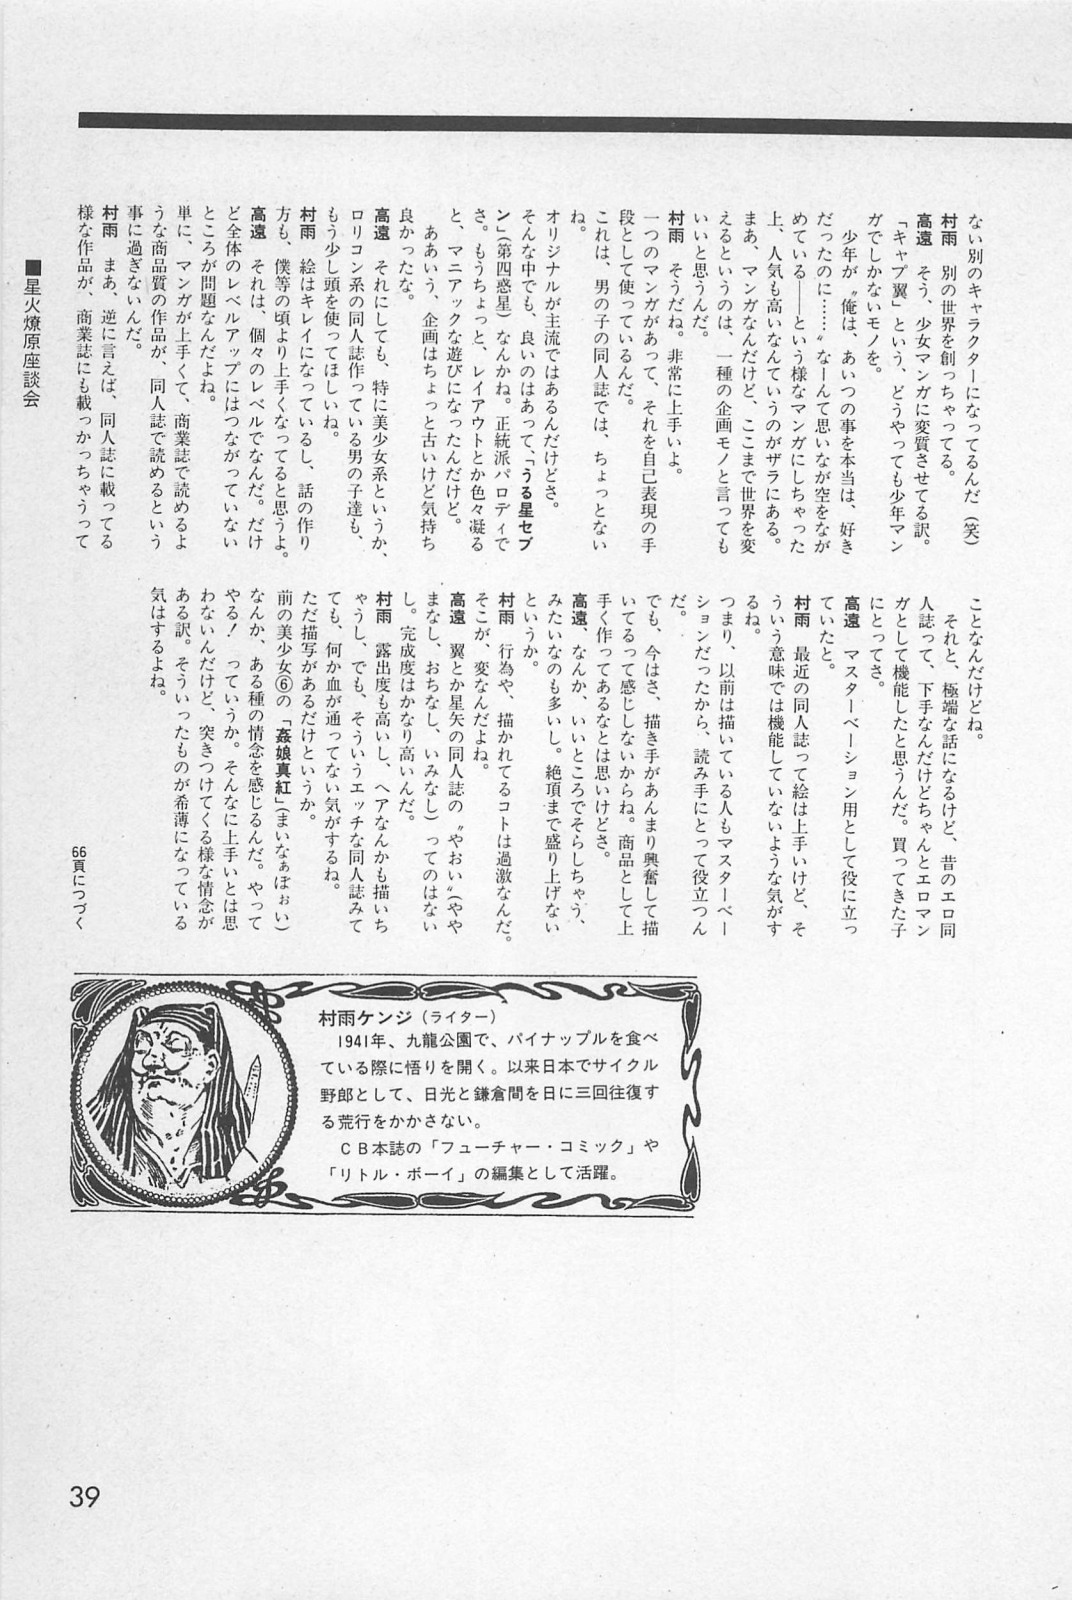 ない別のキャラクターになってるんだ（笑）
村雨　別の世界を創っちゃってる。
高遠　そう、少女マンガに変質させてる訳。
「キャプ翼」という、どうやっても少年マン
ガでしかないモノを。
　少年が〝俺は、あいつの事を本当は、好き
だったのに……〟なーんて思いながら空をなが
めている――という様なマンガにしちゃった
上、人気も高いなんていうのがザラにある。
まあ、マンガなんだけど、ここまで世界を変
えるというのは、一種の企画モノと言っても
いいと思うんだ。
村雨　そうだね。非常に上手いよ。
一つのマンガがあって、それを自己表現の手
段として使っているんだ。
これは、男の子の同人誌では、ちょっとない
ね。
オリジナルが主流ではあるんだけどさ。
そんな中でも、良いのはあって、「うる星セブ
ン」（第四惑星）なんかね。正統派パロディで
さ。もうちょっと、レイアウトとか色々凝る
と、マニアックな遊びになったんだけど。
　ああいう、企画はちょっと古いけど気持ち
良かったな。
高遠　それにしても、特に美少女系というか、
ロリコン系の同人誌作っている男の子達も、
もう少し頭を使ってほしいね。
村雨　絵はキレイになっているし、話の作り
方も、僕等の頃より上手くなってると思うよ。
高遠　それは、個々のレベルでなんだ。だけ
ど全体のレベルアップにはつながっていない
ところが問題なんだよね。
単に、マンガが上手くて、商業誌で読めるよ
うな商品質の作品が、同人誌で読めるという
事に過ぎないんだ。
村雨　まあ、逆に言えば、同人誌に載ってる
様な作品が、商業誌にも載っかっちゃうって
ことなんだけどね。
　それと、極端な話になるけど、昔のエロ同
人誌って、下手なんだけどちゃんとエロマン
ガとして機能したと思うんだ。買ってきた子
にとってさ。
高遠　マスターベーション用として役に立っ
ていたと。
村雨　最近の同人誌って絵は上手いけど、そ
ういう意味では機能していないような気がす
るね。
つまり、以前は描いている人もマスターベー
ションだったから、読み手にとって役立つん
だ。
でも、今はさ、描き手があんまり興奮して描
いてるって感じしないからね。商品として上
手く作ってあるなとは思いけどさ。
高遠、なんか、いいところでそらしちゃう、
みたいなのも多いし。絶頂まで盛り上げない
というか。
村雨　行為や、描かれてるコトは過激なんだ。
そこが、変なんだよね。
高遠　翼とか星矢の同人誌の〝やおい〟（やや
まなし、おちなし、いみなし）ってのはない
し。完成度はかなり高いんだ。
村雨　露出度も高いし、ヘアなんかも描いち
ゃうし、でも、そういうエッチな同人誌みて
ても、何か血が通ってない気がするね。
ただ描写があるだけというか。
前の美少女⑥の「姦娘真紅」（まいなぁぼぉい）
なんか、ある種の情念を感じるんだ。やって
やる！　っていうか。そんなに上手いとは思
わないんだけど、突きつけてくる様な情念が
ある訳。そういったものが希薄になっている
気はするよね。
66頁につづく
村雨ケンジ（ライター）
1941年、九龍公園で、パイナップルを食べ
ている際に悟りを開く。以来日本でサイクル
野郎として、日光と鎌倉間を日に三回往復す
る荒行をかかさない。
ＣＢ本誌の「フューチャー・コミック」や
「リトル・ボーイ」の編集として活躍。
■星火燎原座談会
39